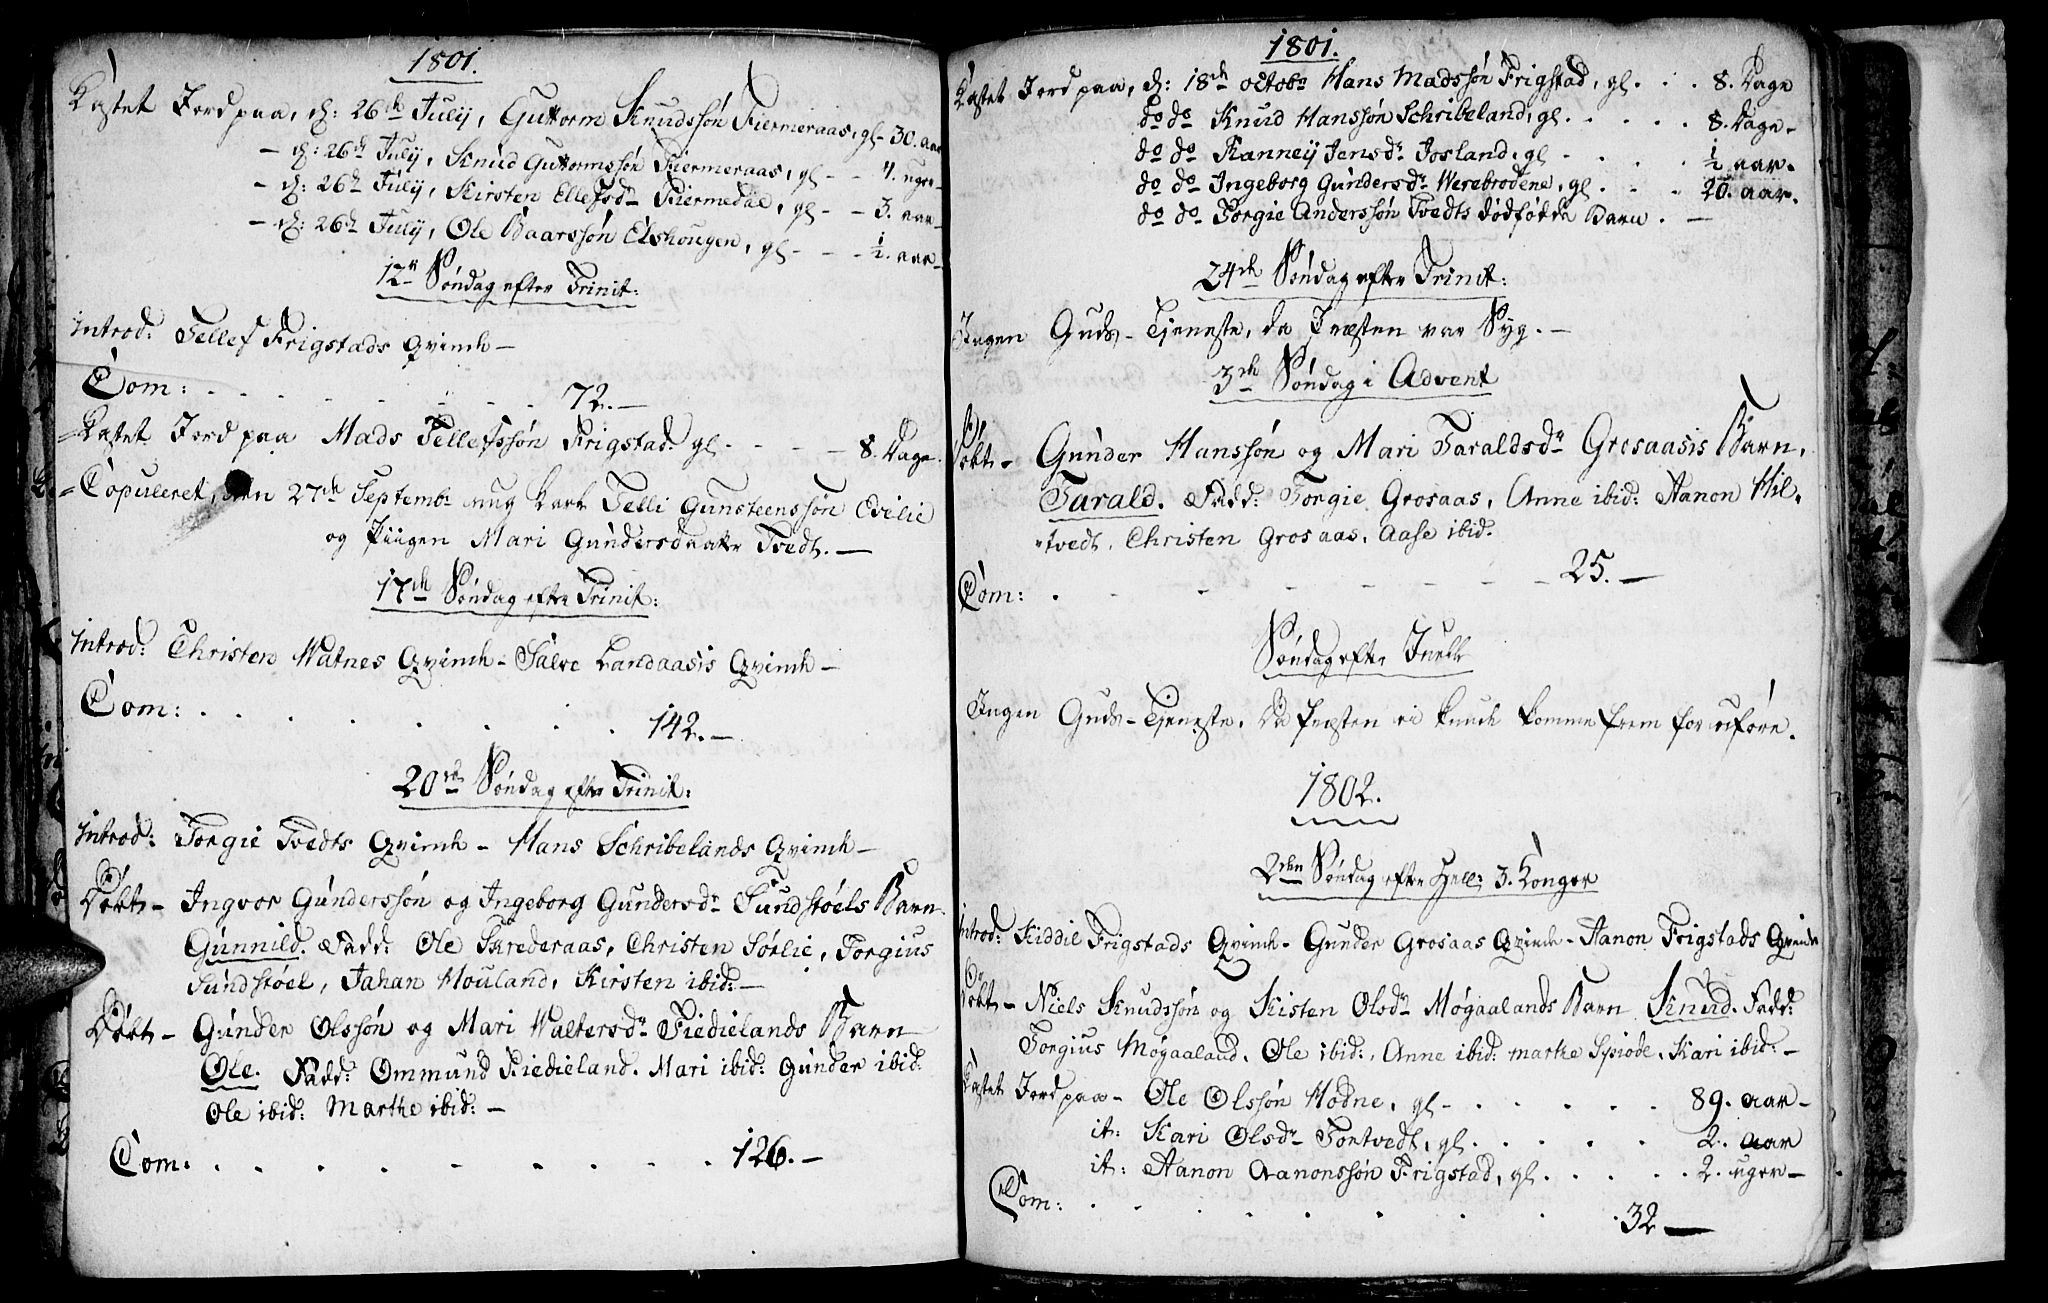 1801.
Kastet Jord paa, d: 26de July, Guttorm Knudssøn Fiermeraas, gl - 30. aar
- d: 26de July, Knud Guttormssøn Fiermeraas, gl - - 4. uger -
- d: 26de July, Kirsten Ellefsdr Fiermedal, gl - - 3. aar
- d: 26de July, Ole Baarssøn Elshougen, gl - - - ½. aar -
12te Søndag efter Trinit:
Introd: Tellef Frigstads Qvinde -
Com: . . . . . . . 72. -
Kastet Jord paa Mads Tellefssøn Frigstad. gl - - - - 8. Dage.
Copuleret, den 27de Septembr ung Karl Telli Gunsteenssøn Evilie
og Piigen Mari Gundersdaatter Tvedt. -
17de Søndag efter Trinit:
Introd: Christen Watnes Qvinde - Salve Landaasis Qvinde -
Com: . . . . . . . 142. -
20de Søndag efter Trinit:
Introd: Torgie Tvedts Qvinde - Hans Schribelands Qvinde -
Døbt - Ingvor Gunderssøn og Ingeborg Gundersdr Sundstøels Barn
Gunnild. Fadd: Ole Skrederaas, Christen Sørlie, Torgius
Sundstøel, Jahan Houland, Kirsten ibid: -
Døbt - Gunder Olssøn og Mari Waltersdr Fiedielands Barn
Ole. Fadd: Ommund Fiedieland. Mari ibid: Gunder ibid:
Ole ibid: Marthe ibid: -
Com: . . . . . . . . 126. -
1801.
Kastet Jord paa, d: 18de octobr Hans Madssøn Frigstad, gl . . . 8. Dage
do do Knud Hanssøn Schribeland, gl . . . . . 8. Dage -
do do Ranney Jensdr Josland, gl - . . . ½ aar -
do do Ingeborg Gundersdr Werebrodene, gl . . . 20. aar -
do do Torgie Anderssøn Tvedts dødfødde Barn . -
24de Søndag efter Trinit:
Ingen Guds-Tjeneste, da Præsten var Syg. -
3de Søndag i Advent
Døbt - Gunder Hanssøn og Mari Taraldsdr Grosaasis Barn,
Tarald. Fadd: Torgie Grosaas, Anne ibid: Aanon Hil-
-tvedt, Christen Grosaas, Aase ibid.
Com: . . . . . . . 25. -
Søndag efter Juell
Ingen Guds-Tjeneste, da Præsten ei kunde komme frem for uføre.
1802.
2den Søndag efter Hell: 3. Konger
Introd: Kiddil Frigstads Qvinde - Gunder Grosaas Qvinde - Aanon Frigstads Qvinde
Døbt - Niels Knudssøn og Kisten Olsdr Møgaalands Barn Knud. Fadd:
Torgius Møgaaland, Ole ibid:, Anne ibid: Marthe Spiode, Kari ibid: -
Kastet Jord paa - Ole Olssøn Hodne, gl - . . . . . 89. aar -
it: Kari Olsdr Tontvedt, gl . . . . . 2. aar
it: Aanon Aanonssøn Frigstad, gl . . . . . 2. uger -
Com: . . . . . . . . 32 -